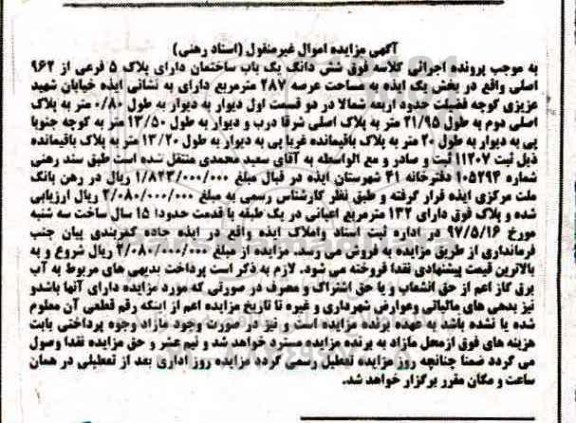 آگهی مزایده اموال غیرمنقول (اسناد رهنی)
به موجب پرونده اجرائی کلاسه فوق شش دانگ یک باب ساختمان دارای پلاک ۵ فرعی از ۹۶۲
اصلی واقع در بخش یک ایذه به مساحت عرصه ۲۸۷ مترمربع دارای به نشانی ایذه خیابان شهید
عزیزی کوچه فضیلت حدود اربعه شمالا در دو قسمت اول دیوار به دیوار به طول ۰/۸۰ متر به پلاک
اصلی دوم به طول ۲۱/۹۵ متر به پلاک اصلی شرقا درب و دیوار به طول ۱۳/۵۰ متر به کوچه جنوبا
پی به دیوار به طول ۲۰ متر به پلاک باقیمانده غربا پی به دیوار به طول ۱۳/۲۰ متر به پلاک باقیمانده
ذیل ثبت ۱۱۲۰۷ ثبت و صادر و مع الواسطه به آقای سعید محمدی منتقل شده است طبق سند رهنی
شماره ۱۰۵۲۹۴ دفترخانه ۴۱ شهرستان ایذه در قبال مبلغ ۱/۸۲۳/۰۰۰/۰۰۰ ریال در رهن بانک
ملت مرکزی ایذه قرار گرفته و طبق نظر کارشناس رسمی به مبلغ ۲/۰۸۰/۰۰۰/۰۰۰ ریال ارزیابی
شده و پلاک فوق دارای ۱۳۲ مترمربع اعیانی در یک طبقه با قدمت حدودا ۱۵ سال ساخت سه شنبه
مورخ ۹۷/۵/۱۶ در اداره ثبت اسناد واملاک ایذه واقع در ایذه جاده کمربندی پیان جنب
فرمانداری از طریق مزایده به فروش می رسد. مزایده از مبلغ ۲/۰۸۰/۰۰۰/۰۰۰ ریال شروع و به
بالاترین قیمت پیشنهادی نقدا فروخته می شود. لازم به ذکر است پرداخت بدیهی های مربوط به آب
برق گاز اعم از حق انشعاب و یا حق اشتراک و مصرف در صورتی که مورد مزایده دارای آنها باشدو
نیز بدهی های مالیاتی وعوارض شهرداری و غیره تا تاریخ مزایده اعم از اینکه رقم قطعی آن معلوم
شده یا نشده باشد به عهده برنده مزایده است و نیز در صورت وجود مازاد وجوه پرداختی بابت
هزینه های فوق ازمحل مازاد به برنده مزایده مسترد خواهد شد و نیم عشر و حق مزایده نقدا وصول
می گردد ضمنا چنانچه روز مزایده تعطیل رسمی گردد مزایده روز اداری بعد از تعطیلی در همان
ساعت و مکان مقرر برگزار خواهد شد.